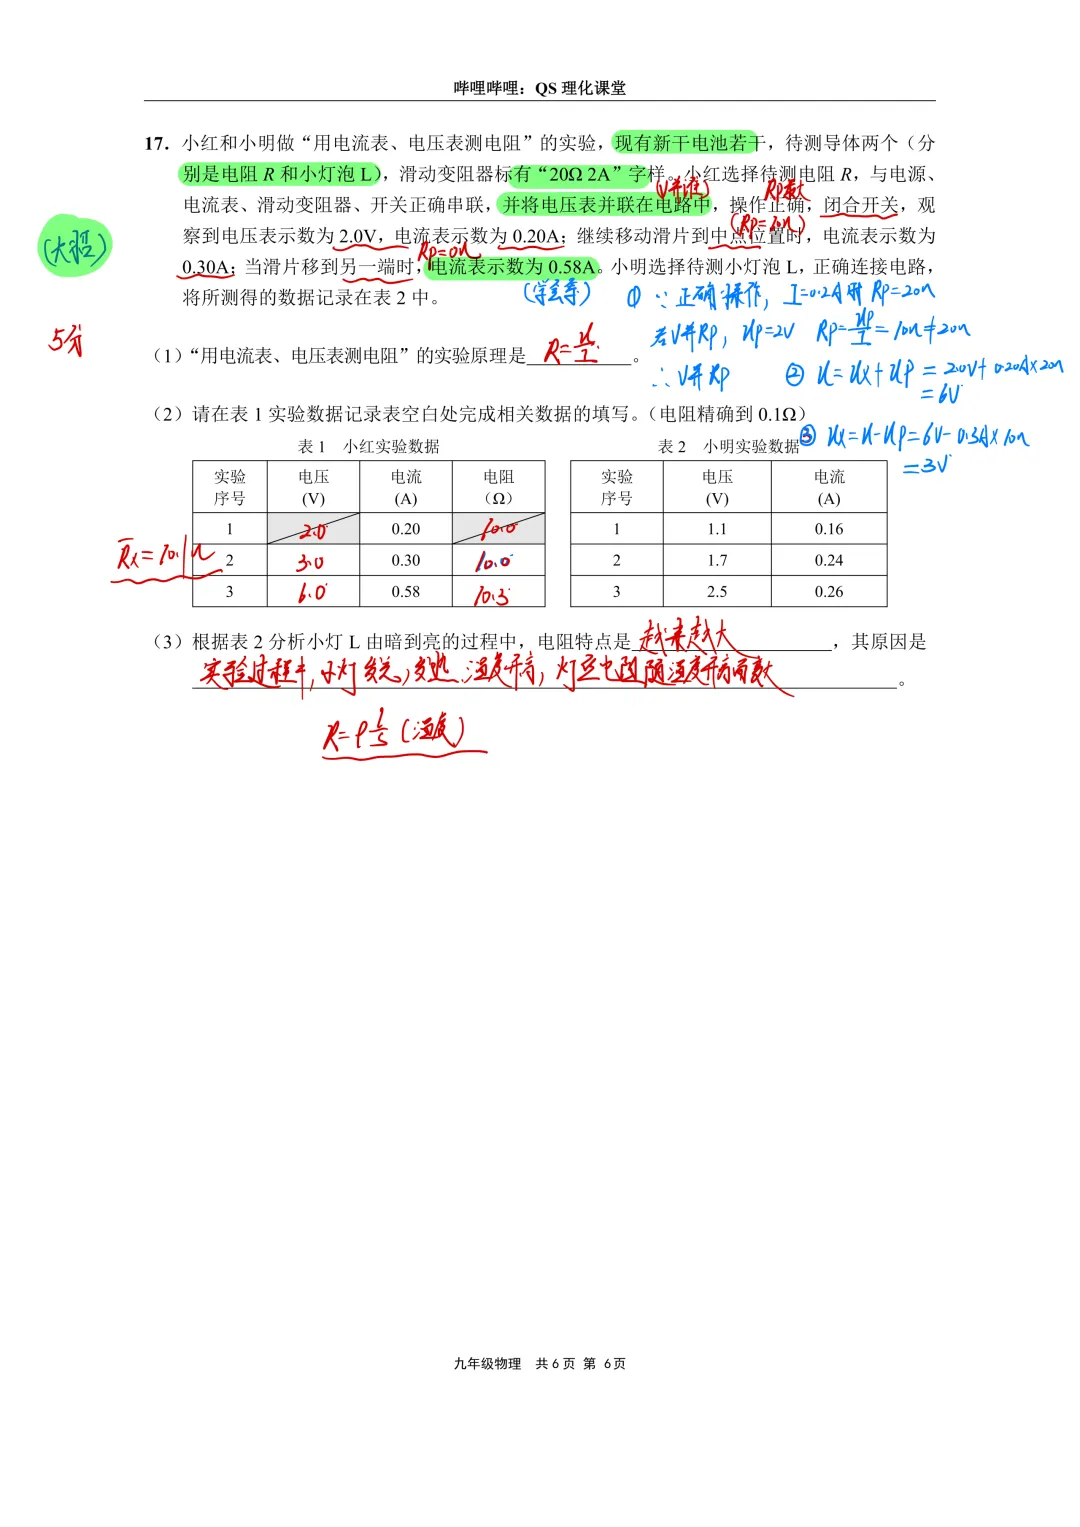 哔哩哔哩：QS 理化课堂
17. 小红和小明做“用电流表、电压表测电阻”的实验，现有新干电池若干，待测导体两个（分
别是电阻 R 和小灯泡 L），滑动变阻器标有“20Ω 2A”字样。小红选择待测电阻 R，与电源、
(V并谁) Rp最大
电流表、滑动变阻器、开关正确串联，并将电压表并联在电路中，操作正确，闭合开关，观
(Rp=10Ω)
察到电压表示数为 2.0V，电流表示数为 0.20A；继续移动滑片到中点位置时，电流表示数为
Rp=0Ω
0.30A；当滑片移到另一端时，电流表示数为 0.58A。小明选择待测小灯泡 L，正确连接电路，
将所测得的数据记录在表 2 中。
① ∵正确操作，I=0.2A时 Rp=20Ω
若V并Rp，Up=2V Rp=Up/I=10Ω≠20Ω
② U=Ux+Up=2.0V+0.20A×20Ω
=6V
③ Ux=U-Up=6V-0.3A×10Ω
=3V
5分
（1）“用电流表、电压表测电阻”的实验原理是 R=U/I 。
（2）请在表 1 实验数据记录表空白处完成相关数据的填写。（电阻精确到 0.1Ω）
表 1 小红实验数据
实验序号 电压(V) 电流(A) 电阻（Ω）
1 2.0 0.20 10.0
2 3.0 0.30 10.0
3 6.0 0.58 10.3
Rx=10.1Ω
表 2 小明实验数据
实验序号 电压(V) 电流(A)
1 1.1 0.16
2 1.7 0.24
3 2.5 0.26
（3）根据表 2 分析小灯 L 由暗到亮的过程中，电阻特点是 越来越大 ，其原因是
实验过程中，小灯发光，发热 温度升高，灯丝电阻随温度升高而变大 。
R=ρL/S（温度）
九年级物理 共 6 页 第 6页